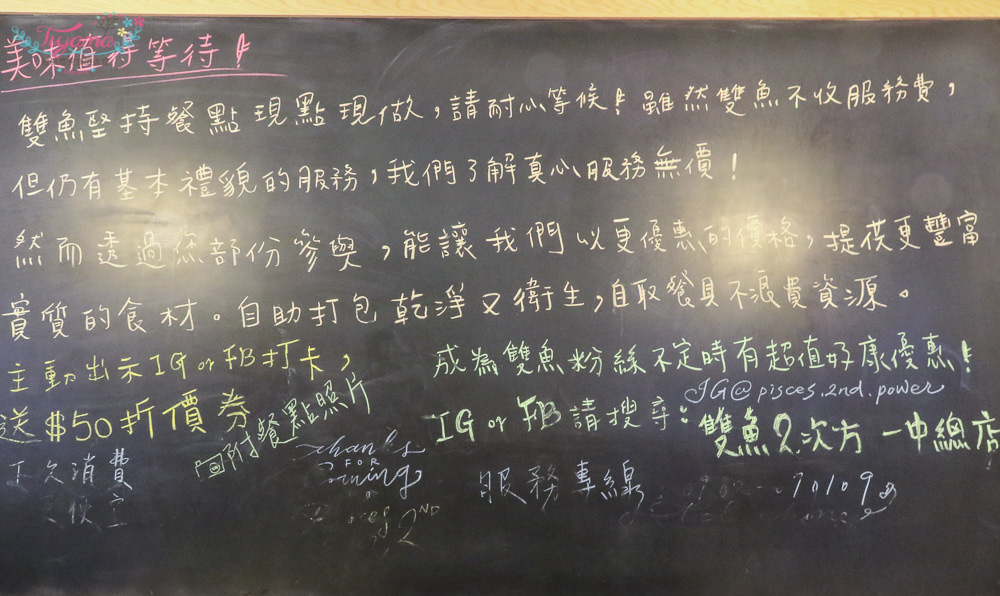 Tiyama
美味值得等待!
雙魚堅持餐點現點現做,請耐心等候!雖然雙魚不收服務費,
但仍有基本禮貌的服務,我們了解真心服務無價!
然而透過您部份參與,能讓我們以更優惠的價格,提供更豐富
實質的食材。自助打包乾淨又衛生,自取餐具不浪費資源。
主動出示IG or FB打卡,
送$50折價券
附餐點照片
下次消費
成為雙魚粉絲不定時有超值好康優惠!
IG@pisces.2nd.power
IG or FB請搜尋:雙魚2次方 一中總店
服務專線
Thanks
FOR
2ND